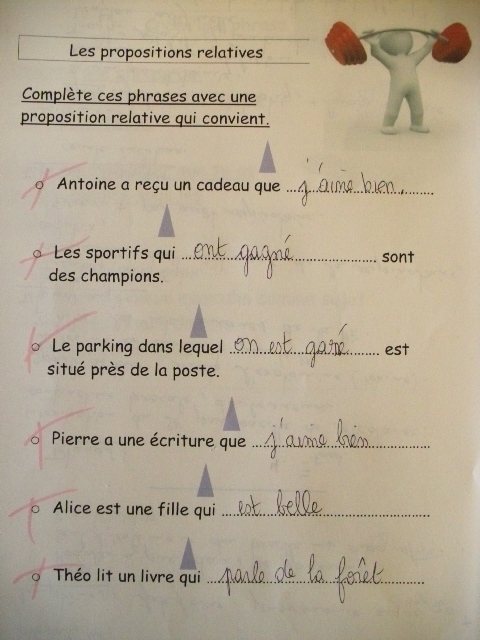 Les propositions relatives
Complète ces phrases avec une
proposition relative qui convient.
o Antoine a reçu un cadeau que ...j'aime bien.........
o Les sportifs qui ...ont gagné..................... sont
des champions.
o Le parking dans lequel ...on est garé......... est
situé près de la poste.
o Pierre a une écriture que ...j'aime bien...............
o Alice est une fille qui ...est belle........................
o Théo lit un livre qui ...parle de la forêt...........